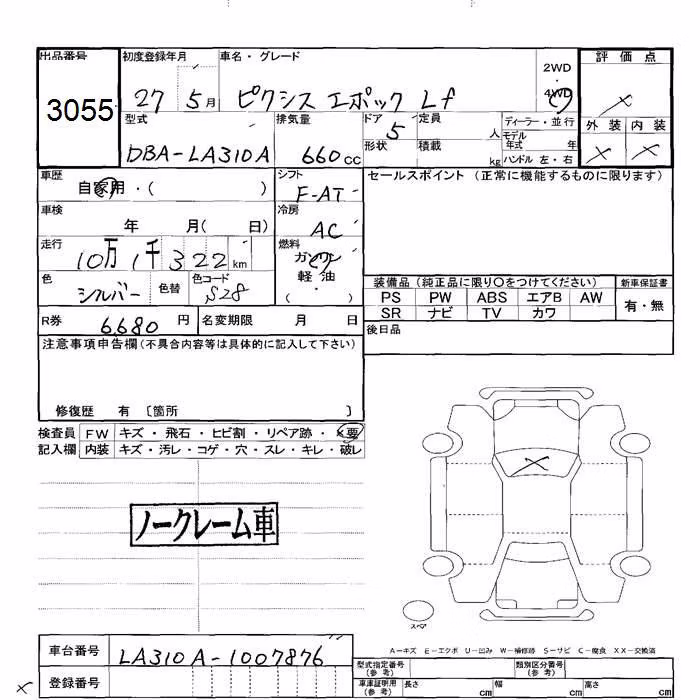 出品番号 初度登録年月 車名・グレード 評価点
3055 27 5月 ピクシス エポック Lf 2WD 4WD ×
外装 内装
× ×
型式 排気量 ドア 定員 ディーラー・並行
DBA-LA310A 660cc 5 人 モデル年式 年
形状 積載 kg ハンドル 左・右
車歴 シフト セールスポイント (正常に機能するものに限ります)
自家用・( ) F-AT
車検 冷房
年 月( 日) AC
走行 燃料
10万1千322km ガソリン・軽油
( )
色 色替 色コード
シルバー S28
装備品(純正品に限り〇をつけてください) 新車保証書
PS PW ABS エアB AW 有・無
SR ナビ TV カワ
R券 6,680円 名変期限 月 日 後日品
注意事項申告欄(不具合内容等は具体的に記入して下さい)
修復歴 有 〔箇所 〕
検査員 FW キズ・飛石・ヒビ割・リペア跡・×要
記入欄 内装 キズ・汚レ・コゲ・穴・スレ・キレ・破レ
×
ノークレーム車
スペア
A-キズ E-エクボ U-凹み W-補修跡 S-サビ C-腐食 XX-交換済
車台番号 LA310A-1007876
登録番号
×
型式指定番号(参考) 類別区分番号(参考)
車庫証明用(参考) 長さ cm 幅 cm 高さ cm